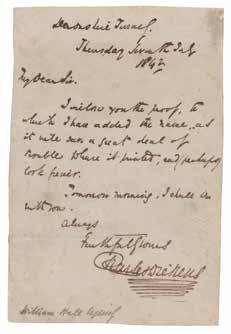 Devonshire Terrace.
Thursday Seventh July
184
My Dear Sir.
I inclose you the proof, to
which I have added the name, as
it will save a great deal of
trouble to have it printed; and (perhaps)
look fresher.
Tomorrow morning, I shall be
with you.
Always
Faithfully Yours
Charles Dickens
William Hall Esquire